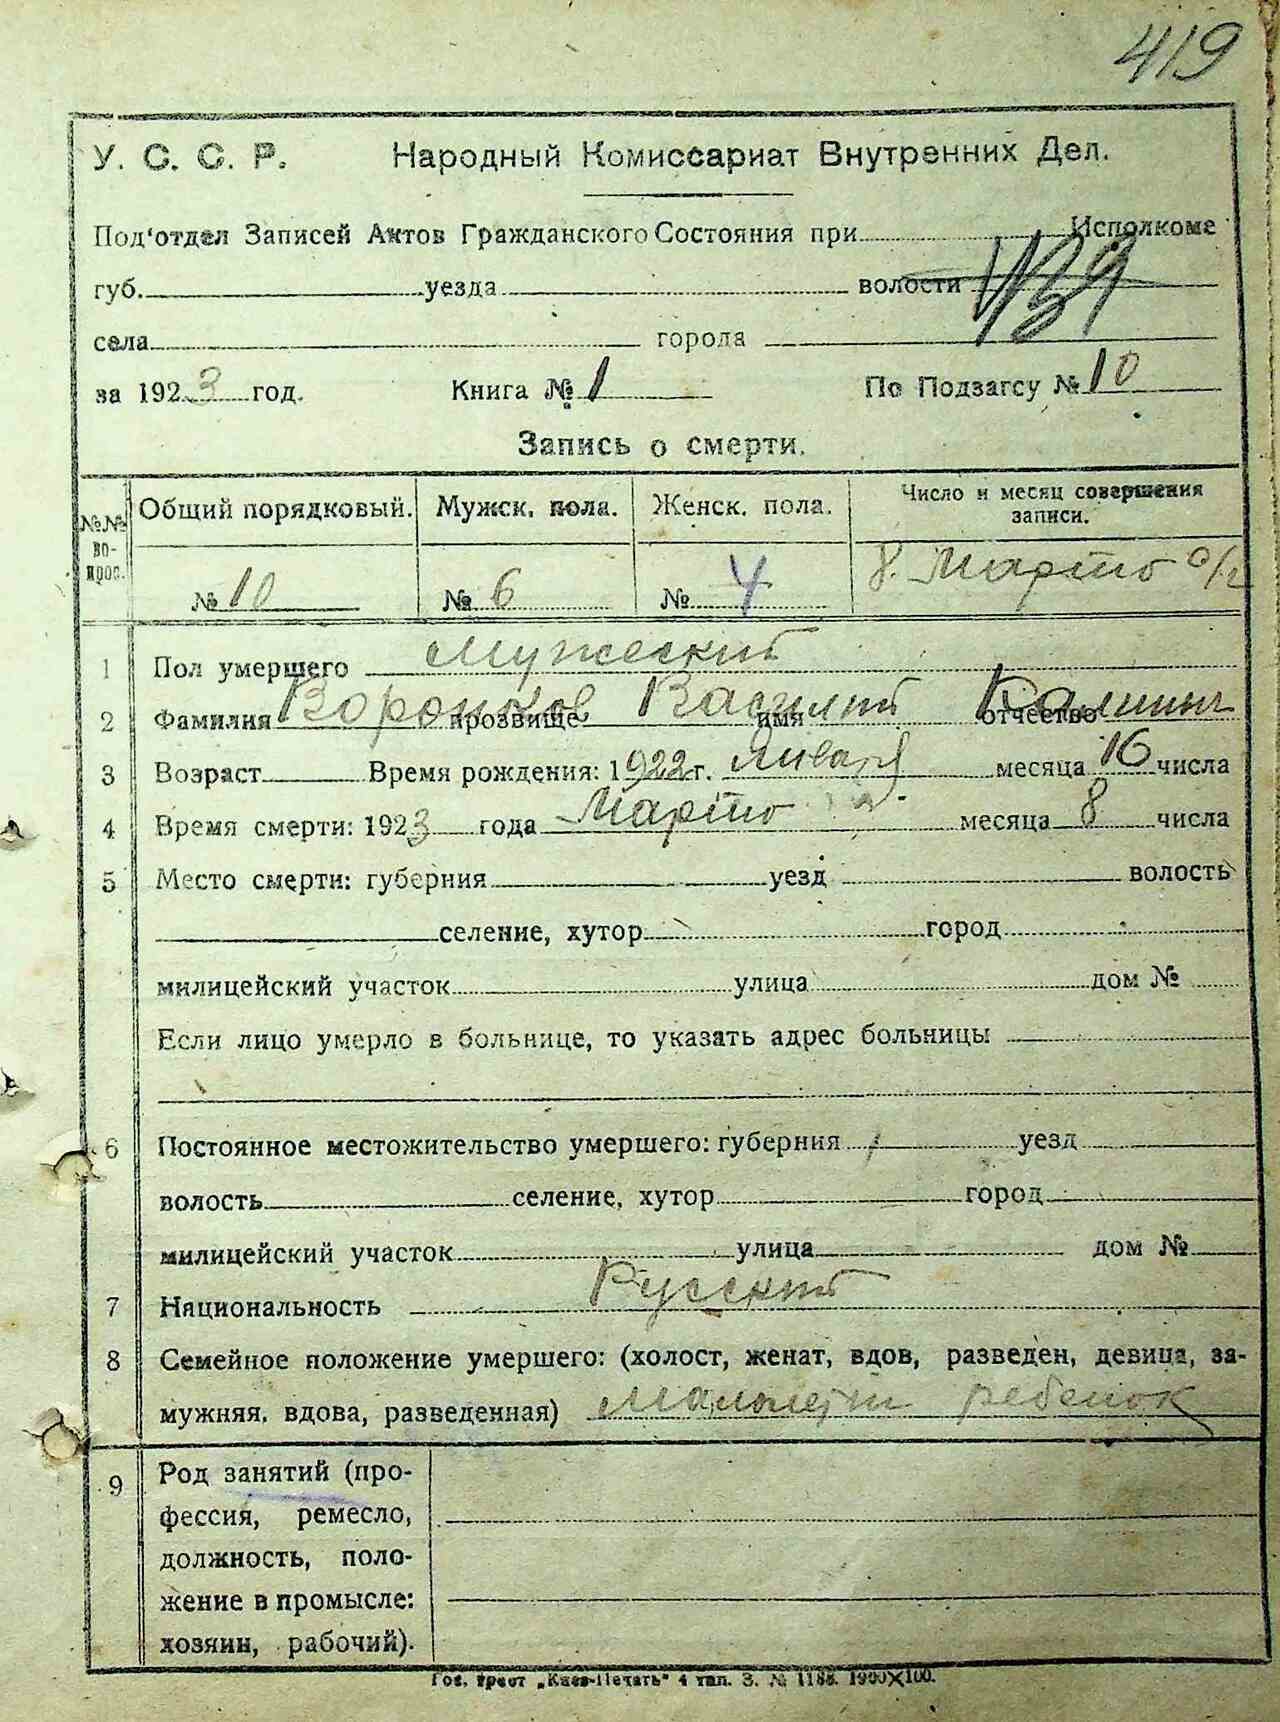 419
У. С. С. Р. Народный Комиссариат Внутренних Дел.
Под'отдел Записей Актов Гражданского Состояния при Исполкоме
губ. уезда волости 439
села города
за 1923 год. Книга № 1 По Подзагсу № 10
Запись о смерти.
№№ вопрос. Общий порядковый. Мужск. пола. Женск. пола. Число и месяц совершения записи.
№ 10 № 6 № 4 8. Марто
1 Пол умершего Мужеский
2 Фамилия Воронков прозвище имя Василий отчество
3 Возраст Время рождения: 1922 г. Января месяца 16 числа
4 Время смерти: 1923 года Марто месяца 8 числа
5 Место смерти: губерния уезд волость
селение, хутор город
милицейский участок улица дом №
Если лицо умерло в больнице, то указать адрес больницы
6 Постоянное местожительство умершего: губерния уезд
волость селение, хутор город
милицейский участок улица дом №
7 Национальность Русский
8 Семейное положение умершего: (холост, женат, вдов, разведен, девица, за-
мужняя, вдова, разведенная) ребенок
9 Род занятий (про-
фессия, ремесло,
должность, поло-
жение в промысле:
хозяин, рабочий).
Гос. трест „Киев-Печать" 4 тип. З. № 1188. 1900×100.